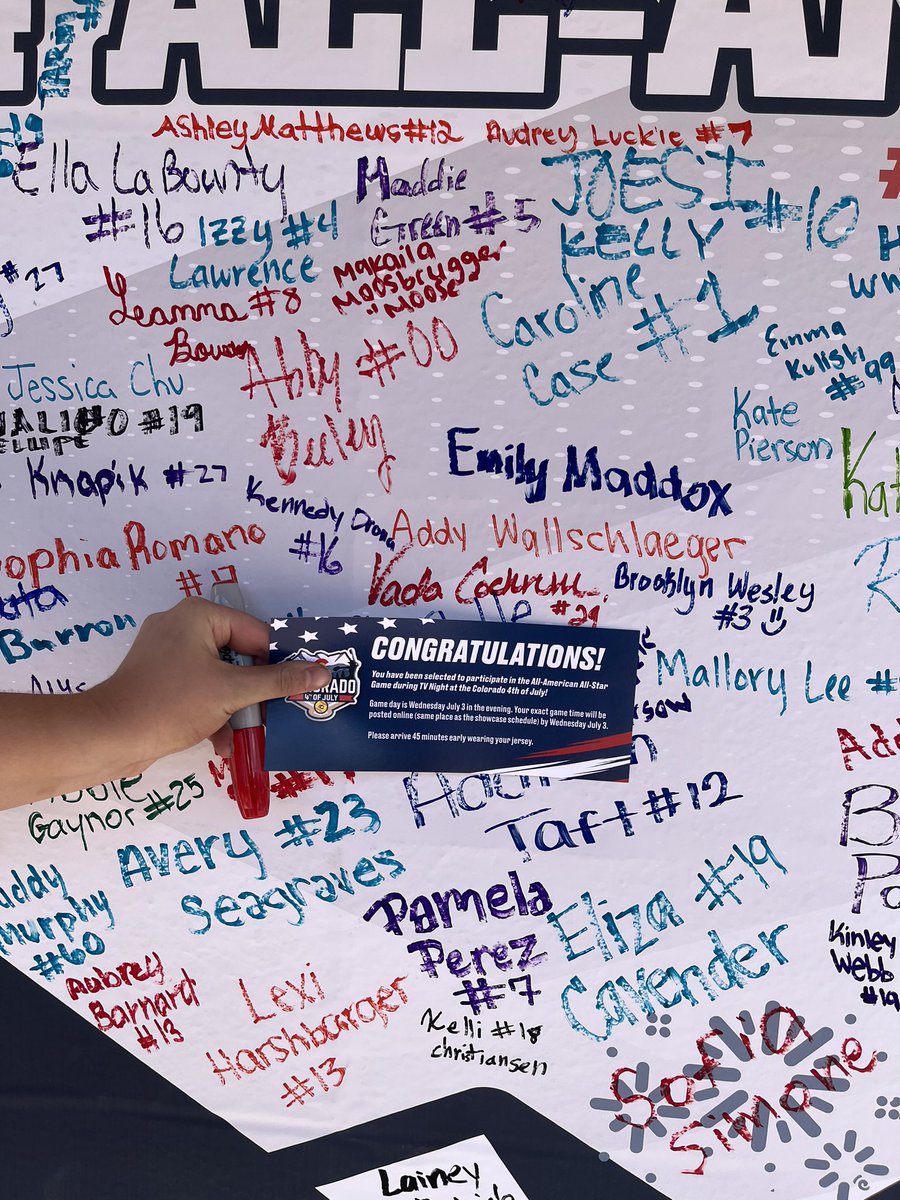 ALL-A
Ashley Matthews #12 Audrey Luckie #7
Ella LaBounty
#16
Maddie
Green #5
JOESI
KELLY #10
Izzy #4
Lawrence
#27
Makaila
Moosbrugger
"Moose"
Leanna #8
Bowen
Caroline
Case #1
Abby #00
Emma
Kulish
#99
Jessica Chu
#19
Kate
Pierson
Knapik #27
Emily Maddox
Kennedy
#16
Addy Wallschlaeger
Sophia Romano
#17
Vada
#29
Brooklyn Wesley
#3
Barron
Mallory Lee #
CONGRATULATIONS!
You have been selected to participate in the All-American All-Star
Game during TV Night at the Colorado 4th of July!
Game day is Wednesday July 3 in the evening. Your exact game time will be
posted online (same place as the showcase schedule) by Wednesday July 3.
Please arrive 45 minutes early wearing your jersey.
4TH OF JULY
Gaynor #25
Taft #12
Avery #23
Seagraves
Murphy
#60
Pamela
Perez
#7
Eliza #19
Cavender
Kinley
Webb
#19
Aubrey
Barnard
#13
Lexi
Harshbarger
#13
Kelli #18
Christiansen
Sofia
Simone
Lainey